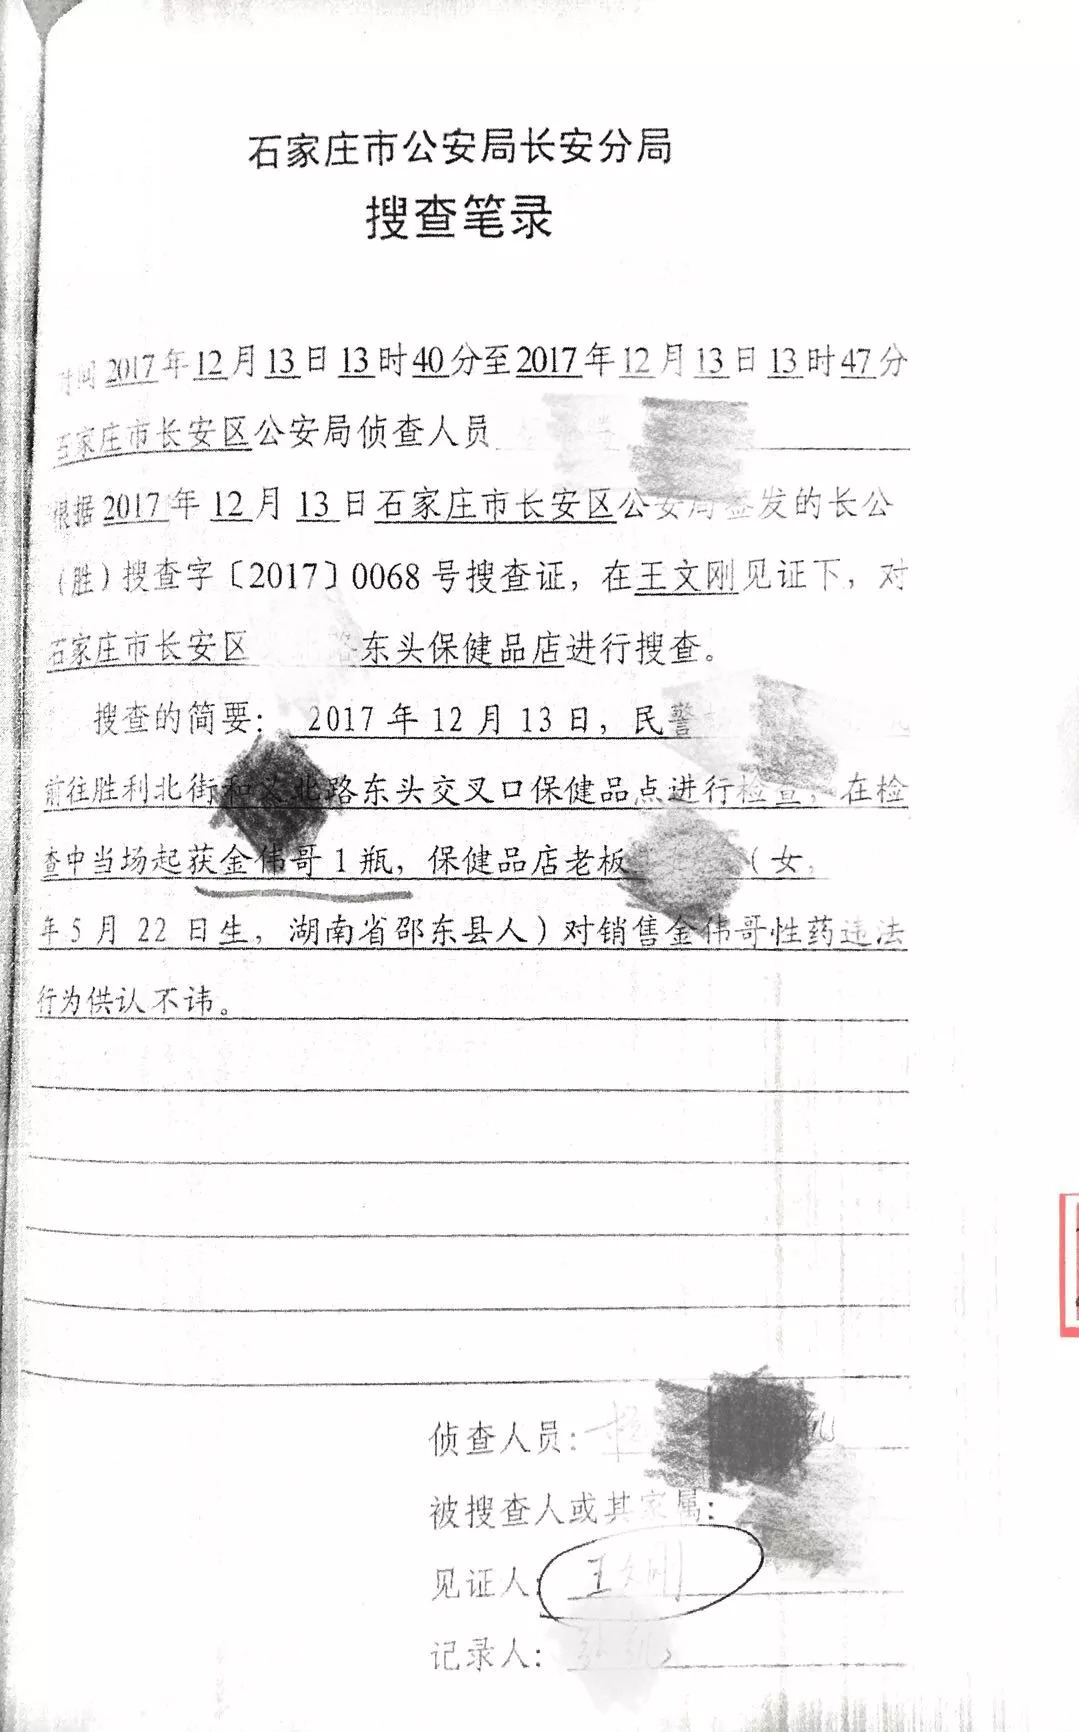 石家庄市公安局长安分局
搜查笔录
时间2017年12月13日13时40分至2017年12月13日13时47分
石家庄市长安区公安局侦查人员
根据2017年12月13日石家庄市长安区公安局签发的长公
（胜）搜查字〔2017〕0068号搜查证，在王文刚见证下，对
石家庄市长安区 路东头保健品店进行搜查。
搜查的简要：2017年12月13日，民警
前往胜利北街和 北路东头交叉口保健品点进行检查，在检
查中当场起获金伟哥1瓶，保健品店老板 （女，
年5月22日生，湖南省邵东县人）对销售金伟哥性药违法
行为供认不讳。
侦查人员：
被搜查人或其家属：
见证人：王文刚
记录人：